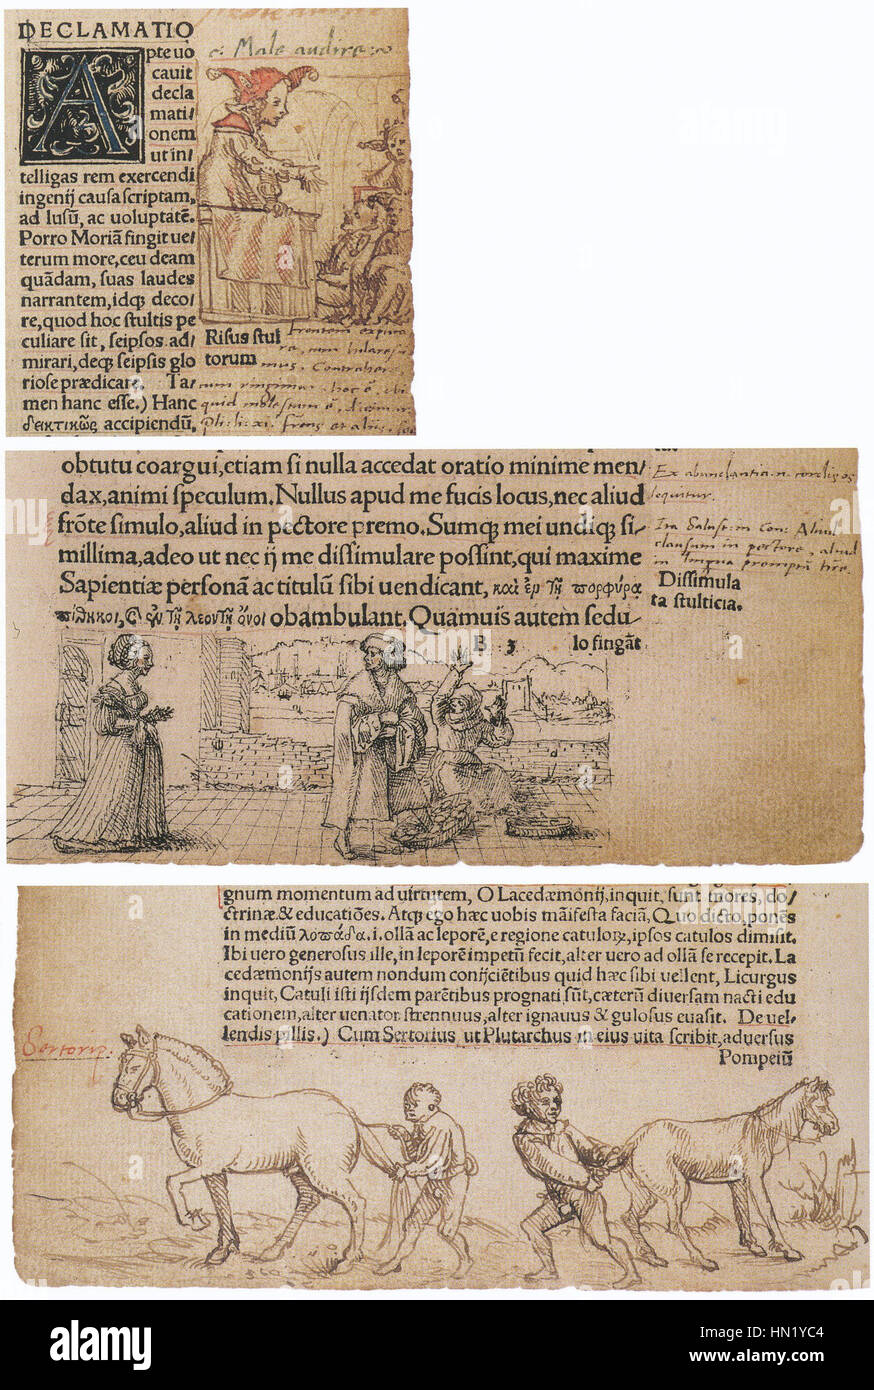 DECLAMATIO
Apte uo
cauit
decla
mati/
onem
ut in/
telligas rem exercendi
ingenij causa scriptam,
ad lusũ, ac uoluptatẽ.
Porro Moriã fingit ue/
terum more, ceu deam
quãdam, suas laudes
narrantem, idq; deco/
re, quod hoc stultis pe
culiare sit, seipsos ad/
mirari, deq; seipsis glo
riose prædicare. Ta/
men hanc esse.) Hanc
δεικτικῶς accipiendũ,
c: Male audire
Risus stul
torum
obtutu coargui, etiam si nulla accedat oratio minime men/
dax, animi speculum. Nullus apud me fucis locus, nec aliud
frõte simulo, aliud in pectore premo. Sumq; mei undiq; si/
millima, adeo ut nec ij me dissimulare possint, qui maxime
Sapientiæ personã ac titulũ sibi uendicant, καὶ ἐρ τῇ πορφύρα
πίθηκοι, ϗ ὢν τῇ λεοντῇ ὄνοι obambulant. Quamuis autem sedu/
B 3 lo fingãt
Ex abundantia n. cordis os
loquitur.
in pectore, aliud
in lingua promptu
Dissimula
ta stulticia.
gnum momentum ad uirtutem, O Lacedæmonij, inquit, sunt mores, do/
ctrinæ & educatiões. Atq; ego hæc uobis mãifesta faciã, Quo dicto, ponẽs
in mediũ λοπάδα .i. ollã ac leporẽ, e regione catuloꝝ, ipsos catulos dimisit.
Ibi uero generosus ille, in leporẽ impetũ fecit, alter uero ad ollã se recepit. La
cedæmonijs autem nondum conijciẽtibus quid hæc sibi uellent, Licurgus
inquit, Catuli isti ijsdem parẽtibus prognati sũt, cæterũ diuersam nacti edu
cationem, alter uenator strennuus, alter ignauus & gulosus euasit. De uel/
lendis pillis.) Cum Sertorius ut Plutarchus in eius uita scribit, aduersus
Pompeiũ
Sertorius.
alamy
Image ID: HN1YC4
www.alamy.com